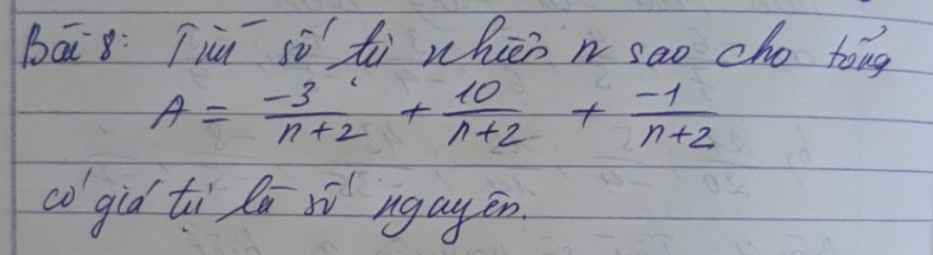 Bài 8: Tìm số tự nhiên n sao cho tổng
A = \frac{-3}{n+2} + \frac{10}{n+2} + \frac{-1}{n+2}
có giá trị là số nguyên.